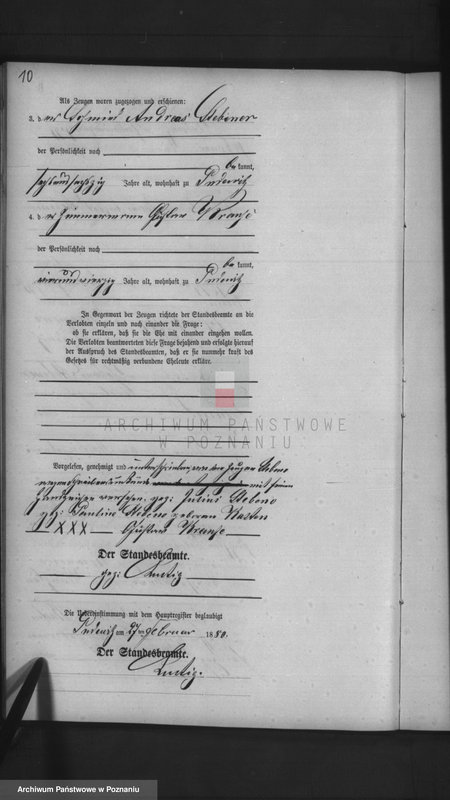 10
Als Zeugen waren zugezogen und erschienen:
3. der Schmied Andreas
der Persönlichkeit nach
be kannt,
sechsundsechszig Jahre alt, wohnhaft zu Pudewitz
4. der Zimmermann Gustav Krause
der Persönlichkeit nach
be kannt,
vierundvierzig Jahre alt, wohnhaft zu Pudewitz
In Gegenwart der Zeugen richtete der Standesbeamte an die
Verlobten einzeln und nach einander die Frage:
ob sie erklären, daß sie die Ehe mit einander eingehen wollen.
Die Verlobten beantworteten diese Frage bejahend und erfolgte hierauf
der Ausspruch des Standesbeamten, daß er sie nunmehr kraft des
Gesetzes für rechtmäßig verbundene Eheleute erkläre.
ARCHIWUM PAŃSTWOWE
W POZNANIU
Vorgelesen, genehmigt und
mit seinen
Handzeichen versehen. gez: Julius
gez: Pauline geborene
XXX Gustav Krause
Der Standesbeamte.
gez: Ludwig
Die Uebereinstimmung mit dem Hauptregister beglaubigt
Pudewitz am 27 ten Februar 1880.
Der Standesbeamte.
Ludwig.
Archiwum Państwowe w Poznaniu